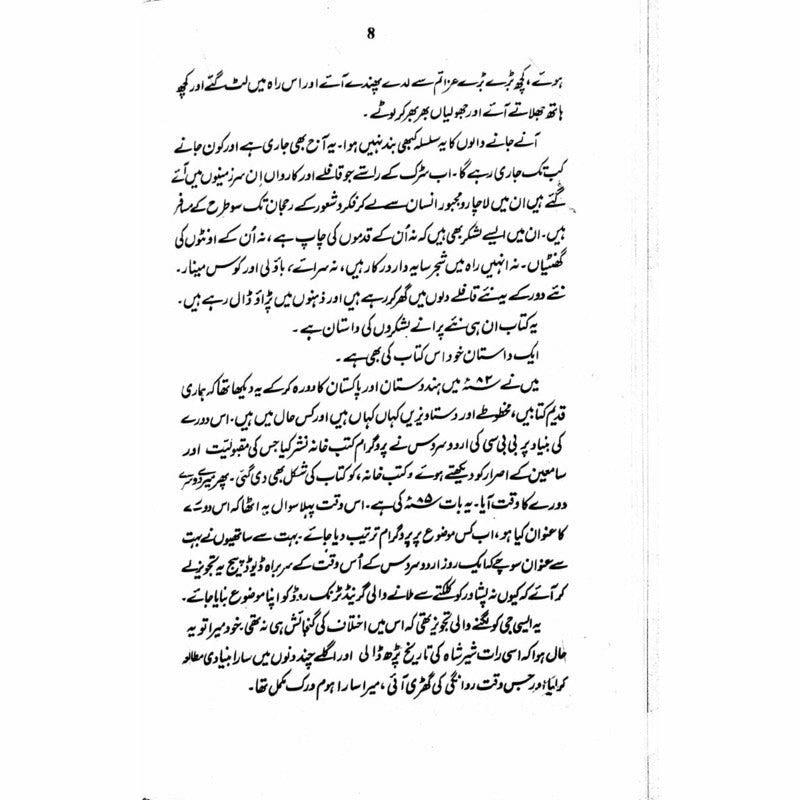 8
ہوئے، کچھ بڑے بڑے عزائم سے لدے پھندے آئے اور اس راہ میں لٹ گئے اور کچھ
ہاتھ جھلاتے آئے اور جھولیاں بھر بھر کر لوٹے۔
آنے جانے والوں کا یہ سلسلہ کبھی بند نہیں ہوا۔ یہ آج بھی جاری ہے اور کون جانے
کب تک جاری رہے گا۔ اب سڑک کے راستے جو قافلے اور کارواں اِن سرزمینوں میں آئے
گئے ہیں ان میں لاچار و مجبور انسان سے لے کر فکر و شعور کے رجحان تک سو طرح کے مسافر
ہیں۔ ان میں ایسے لشکر بھی ہیں کہ نہ اُن کے قدموں کی چاپ ہے، نہ اُن کے اونٹوں کی
گھنٹیاں۔ نہ انہیں راہ میں شجر سایہ دار درکار ہیں، نہ سرائے، باؤلی اور کوس مینار۔
نئے دور کے یہ نئے قافلے دلوں میں گھر کر رہے ہیں اور ذہنوں میں پڑاؤ ڈال رہے ہیں۔
یہ کتاب ان ہی نئے پرانے لشکروں کی داستان ہے۔
ایک داستان خود اس کتاب کی بھی ہے۔
میں نے ۸۲ء میں ہندوستان اور پاکستان کا دورہ کر کے یہ دیکھا تھا کہ ہماری
قدیم کتابیں، مخطوطے اور دستاویزیں کہاں کہاں ہیں اور کس حال میں ہیں۔ اس دورے
کی بنیاد پر بی بی سی کی اردو سروس نے پروگرام کتب خانہ نشر کیا جس کی مقبولیت اور
سامعین کے اصرار کو دیکھتے ہوئے کتب خانہ، کو کتاب کی شکل بھی دی گئی۔ پھر میرے دوسرے
دورے کا وقت آیا۔ یہ بات ۸۵ء کی ہے۔ اس وقت پہلا سوال یہ اٹھا کہ اس دورے
کا عنوان کیا ہو، اب کس موضوع پر پروگرام ترتیب دیا جائے۔ بہت سے ساتھیوں نے بہت
سے عنوان سوچے کہ ایک روز اردو سروس کے اُس وقت کے سربراہ ڈیوڈ پیج یہ تجویز لے
کر آئے کہ کیوں نہ پشاور کو کلکتے سے ملانے والی گرینڈ ٹرنک روڈ کو اپنا موضوع بنایا جائے۔
یہ ایسی جی کو لگنے والی تجویز تھی کہ اس میں اختلاف کی گنجائش ہی نہ تھی۔ خود میرا تو یہ
حال ہوا کہ اسی رات شیر شاہ کی تاریخ پڑھ ڈالی اور اگلے چند دنوں میں سارا بنیادی مطالعہ
کر لیا اور جس وقت روانگی کی گھڑی آئی، میرا سارا ہوم ورک مکمل تھا۔